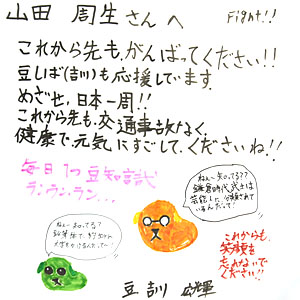 山田 周生さんへ
Fight!!
これから先も、がんばってください!!
豆しば(吉川)も応援しています。
めざせ、日本一周!!
これから先も、交通事故なく、
健康で元気にすごしてくださいね!!
毎日1つ豆知識
ランランラン…
ねぇ~知ってる??
鎌倉時代、武士は
ねぇ~知ってる?
これからも、
笑顔を
忘れないで
ください!!
豆吉川 輝